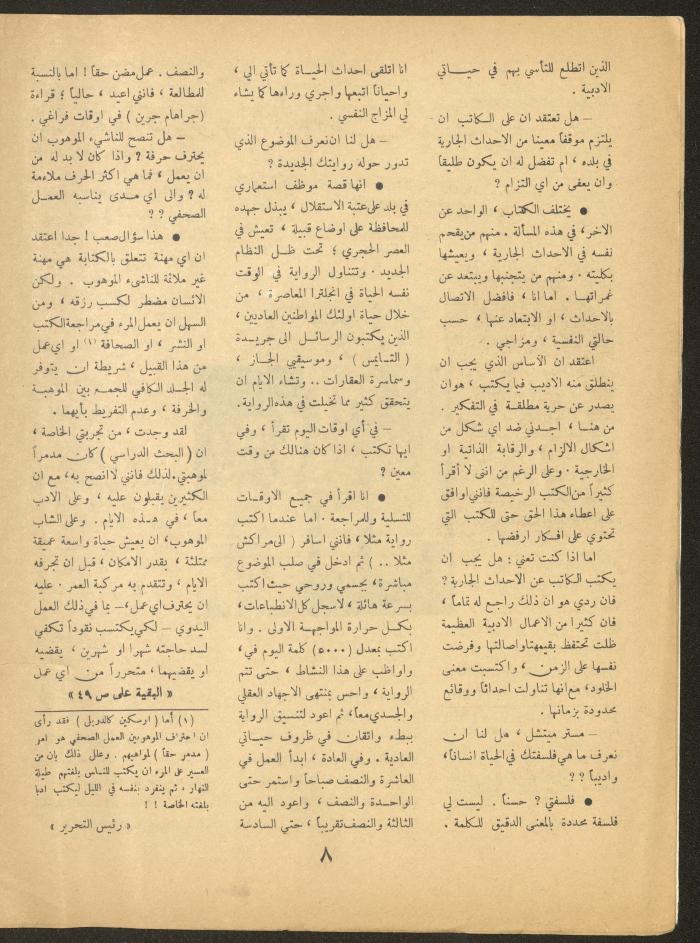 الذين اتطلع للتأسي بهم في حيــاتي
الادبية .
– هل تعتقد ان على الـكاتب ان
يلتزم موقفاً معينا من الاحداث الجارية
في بلده ، ام تفضل له ان يكون طليقاً
وان يعفى من اي التزام ؟
● يختلف الكتاب ، الواحد عن
الاخر، في هذه المسألة . منهم من يقحم
نفسه في الاحداث الجارية ، ويعيشها
بكليته . ومنهم من يتجنبها ويبتعد عن
غمراتهـا . اما انا ، فافضل الاتصال
بالاحداث ، او الابتعاد عنها ، حسب
حالتي النفسية ، ومزاجي .
اعتقد ان الاساس الذي يجب ان
ينطلق منه الاديب فيما يكتب ، هو ان
يصدر عن حرية مطلقـة في التفكير .
من هنـا ، اجـدني ضد اي شكل من
اشكال الالزام ، والرقابة الذاتية او
الخارجية . وعلى الرغم من انني لا أقرأ
كثيراً من الكتب الرخيصة فانني اوافق
على اعطاء هذا الحق حتى للكتب التي
تحتوي على افـكار ارفضها .
اما اذا كنت تعني : هل يجب ان
يكتب الكاتب عن الاحداث الجارية ؟
فان ردي هو ان ذلك راجـع له تماماً ،
فان كثيرا من الاعمال الادبية العظيمة
ظلت تحتفظ بقيمتها واصالتها وفرضت
نفسها على الزمن ، واكتسبت معنى
الخلود، مع انها تناولت احداثاً ووقائع
محدودة بزمانها .
– مستر مبتشل ، هل لنـا ان
نعرف ما هي فلسفتك في الحياة انساناً،
واديباً ؟ ؟
● فلسفتي ؟ حسناً . ليست لي
فلسفة محددة بالمعنى الدقيق للـكلمة .
انا اتلقى احداث الحيـاة كما تأتي الي ،
واحياناً اتبعها واجري وراءها كما يشاء
لي المزاج النفسي .
– هل لنا ان نعرف الموضوع الذي
تدور حوله روايتك الجديدة ؟
● انها قصة موظف استعماري
في بلد على عتبة الاستقلال ، يبذل جهده
للمحافظة على اوضاع قبيلة ، تعيش في
العصر الحجري ؛ تحت ظـل النظام
الجديد . وتتناول الرواية في الوقت
نفسه الحياة في انجلترا المعاصرة ، من
خلال حياة اولئك المواطنين العاديين ،
الذين يكتبون الرسائـل الى جريـدة
( التـايمس ) ، وموسيقيي الجـاز ،
وسماسرة العقارات .. وتشاء الايام ان
يتحقق كثير مما تخيلت في هذه الرواية.
– في أي اوقات اليوم تقرأ ، وفي
ايها تكتب ، اذا كان هنالك من وقت
معين ؟
● انا اقرأ في جميع الاوقـات
للتسلية وللمراجعة . اما عندما اكتب
رواية مثلا ، فانني اسافر ( الى مراكش
مثلا .. ) ثم ادخل في صلب الموضوع
مباشرة ، بجسمي وروحي حيث اكتب
بسرعة هائلة ، لاسجل كل الانطباعات،
بكـل حرارة المواجهـة الاولى . وانا
اكتب بمعدل (٥٠٠٠) كلمة اليوم في،
واواظب على هذا النشاط ، حتى تتم
الرواية ، واحس بمنتهى الاجهاد العقلي
والجسدي معاً، ثم اعود لتنسيق الرواية
ببطء واتقان في ظروف حيـاتي
العادية . وفي العادة ، ابدأ العمل في
العاشرة والنصف صباحاً واستمر حتى
الواحـدة والنصف ، واعود اليه من
الثالثة والنصف تقريباً ، حتى السادسة
والنصف . عمل مضن حقاً ! اما بالنسبة
للمطالعة ، فانني اعيد ، حالياً ؛ قراءة
(جراهام جرين ) في اوقات فراغي .
– هل تنصح للناشيء الموهوب ان
يحترف حرفة ؟ واذا كان لا بد له من
ان يعمل ، فما هي اكثر الحرف ملاءمة
له ؟ والى اي مـدى يناسبه العمـل
الصحفي ؟ ؟
● هذا سؤال صعب ! جدا اعتقد
ان اي مهنة تتعلق بالكتابة هي مهنة
غير ملائمة للناشيء الموهوب . ولكن
الانسان مضطر لكسب رزقه ، ومن
السهل ان يعمل المرء في مراجعة الكتب
او النشر ، او الصحافة (١) او اي عمل
من هذا القبيل ، شريطة ان يتوفر
له الجلد الكافي للجمـع بين الموهبة
والحرفة ، وعدم التفريط بأيهما .
لقد وجدت ، من تجربتي الخاصة ،
ان ( البحث الدراسي ) كان مدمراً
لموهبتي. لذلك فانني لا انصح به ، مع ان
الكثيرين يقبلون عليه ، وعلى الادب
معاً ، في هـذه الايام . وعلى الشاب
الموهوب، ان يعيش حياة واسعة عميقة
ممتلئة ، بقدر الامكان ، قبل ان تجرفه
الايام ، وتتقدم به مركبة العمر . عليه
ان يحترف اي عمل، – بما في ذلك العمل
اليدوي – لكي يكتسب نقوداً تكفي
لسد حاجته شهرا او شهرين ، يقضيه
او يقضيهما ، متحرراً من اي عمل
« البقية على ص ٤٩ »
(١) أما ( ارسكين كالدويل ) فقد رأى
ان احتراف الموهوبين العمل الصحفي هو امر
( مدمر حقاً ) لمواهبهم . وعلل ذلك بان من
العسير على المرء ان يكتب للناس بلغتهم طيلة
النهار ، ثم ينفرد بنفسه في الليل ليكتب ادبا
بلغته الخاصة ! !
« رئيس التحرير »
٨